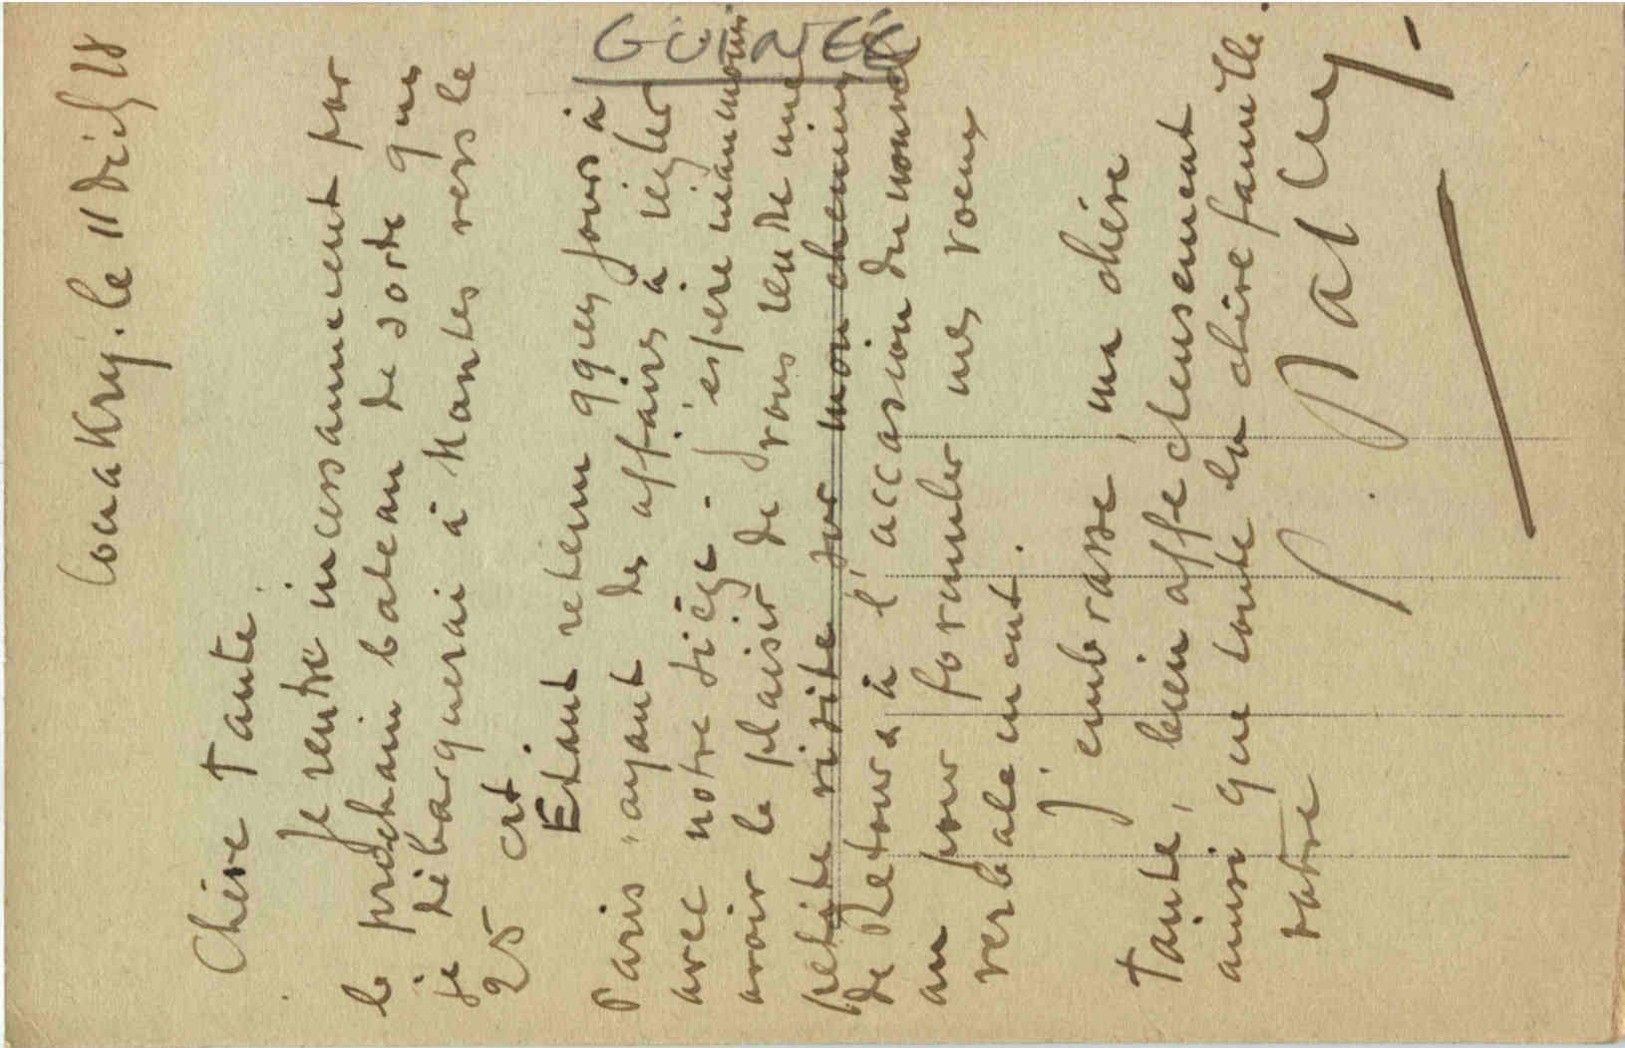 GUINÉE
Conakry. le 11 Déc 28
Chère Tante.
Je rentre incessamment par
le prochain bateau de sorte que
je débarquerai à Nantes vers le
25 crt.
Etant retenu qques jours à
Paris, ayant des affaires à régler
avec notre siège. J'espère néanmoins
avoir le plaisir de vous rendre une
petite visite sur mon chemin
de Retour & à l'occasion du nouvel
an pour formuler mes voeux
verbalement.
J'embrasse, ma chère
Tante, bien affectueusement
ainsi que toute la chère famille.
votre